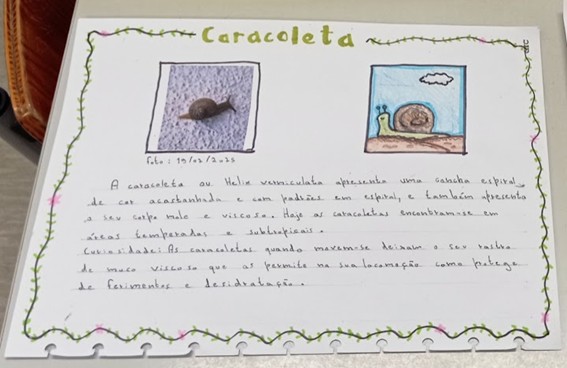 Caracoleta
foto: 19/02/2025
A caracoleta ou Helix vermiculata apresenta uma concha espiral,
de cor acastanhada e com padrões em espiral, e também apresenta
o seu corpo mole e viscoso. Hoje as caracoletas encontram-se em
áreas temperadas e subtropicais.
Curiosidade: As caracoletas quando movem-se deixam o seu rastro
de muco viscoso que as permite na sua locomoção como protege
de ferimentos e desidratação.